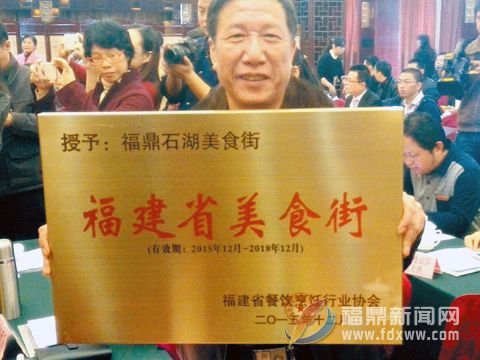 授予：福鼎石湖美食街
福建省美食街
(有效期：2015年12月-2018年12月)
福建省餐饮烹饪行业协会
二〇一五年十二月
福鼎新闻网
www.fdxww.com